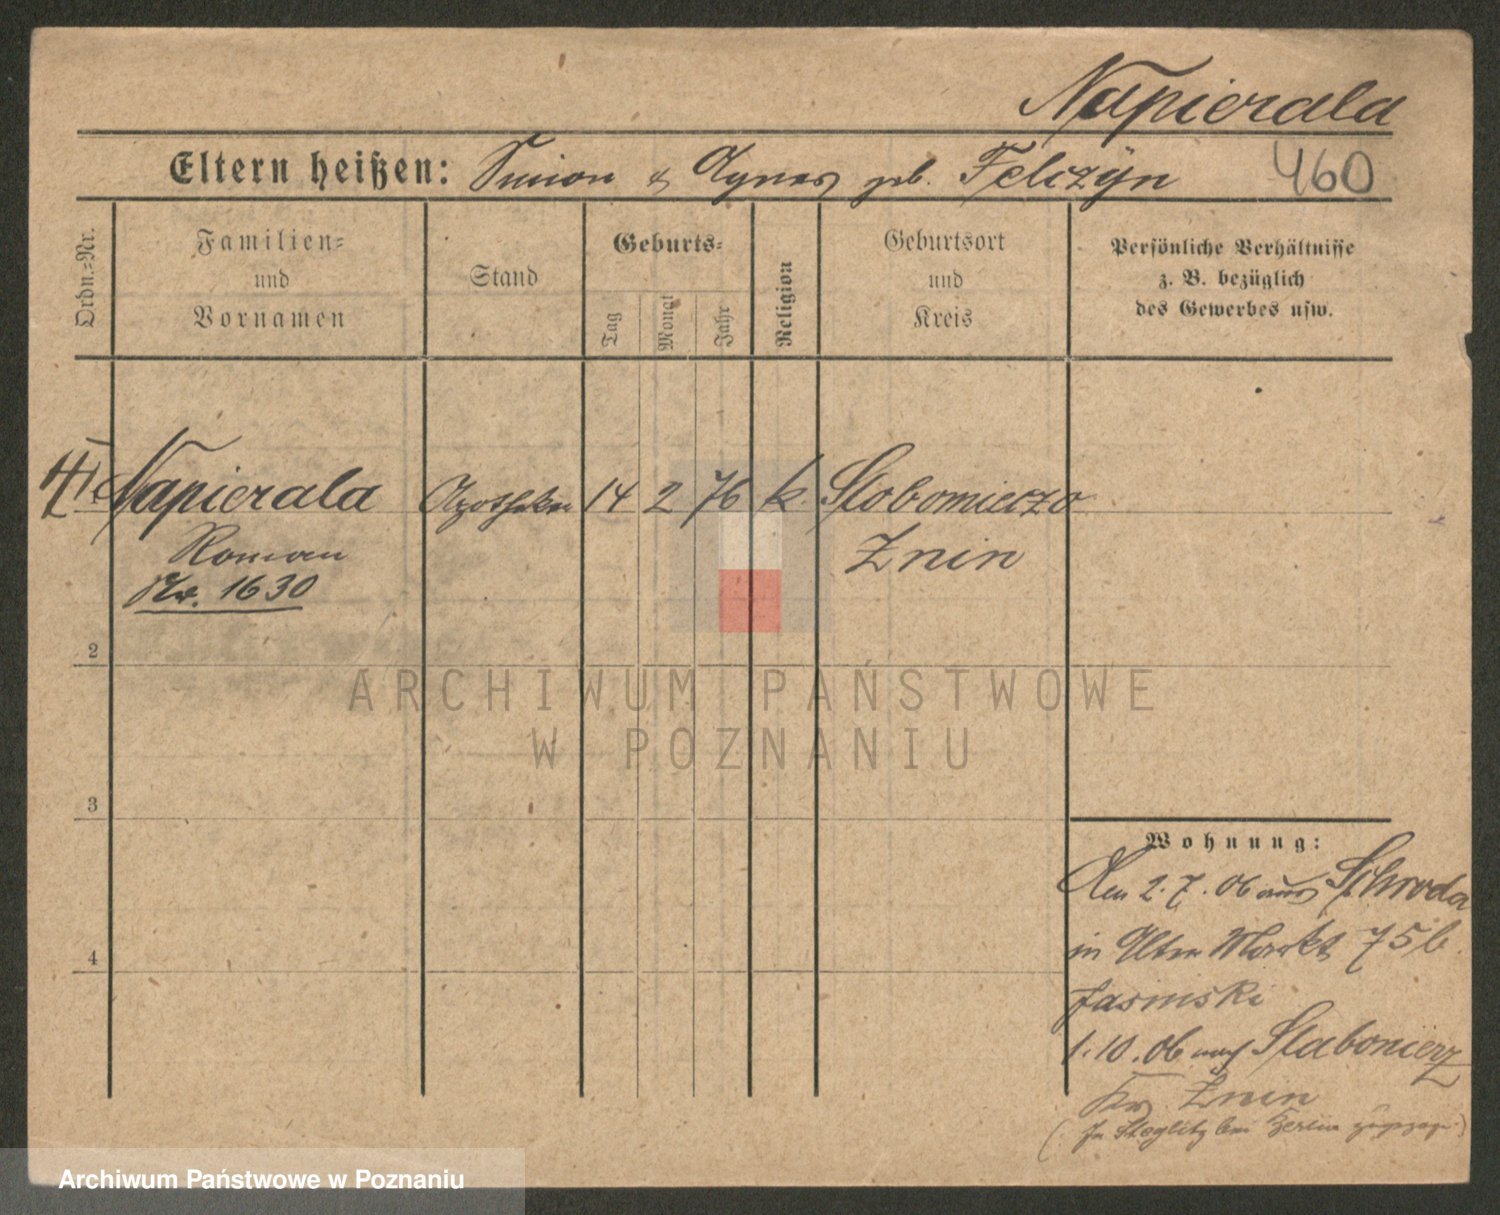 Napierala
Eltern heißen: Simon & Agnes geb. Felczÿn 460
Ordn.=Nr.
Familien=
und
Vornamen
Stand
Geburts=
Tag
Monat
Jahr
Religion
Geburtsort
und
Kreis
Persönliche Verhältnisse
z. B. bezüglich
des Gewerbes usw.
Napierala Apotheker 14 2 76 k. Slobomierzo
Roman Znin
Nr. 1630
2
3
4
ARCHIWUM PAŃSTWOWE
W POZNANIU
Wohnung:
Den 2.7.06 aus Schroda
in Alter Markt 75b.
Jasinski
1.10.06 nach Slabomierz
Kr. Znin
(In Steglitz bei Berlin
Archiwum Państwowe w Poznaniu